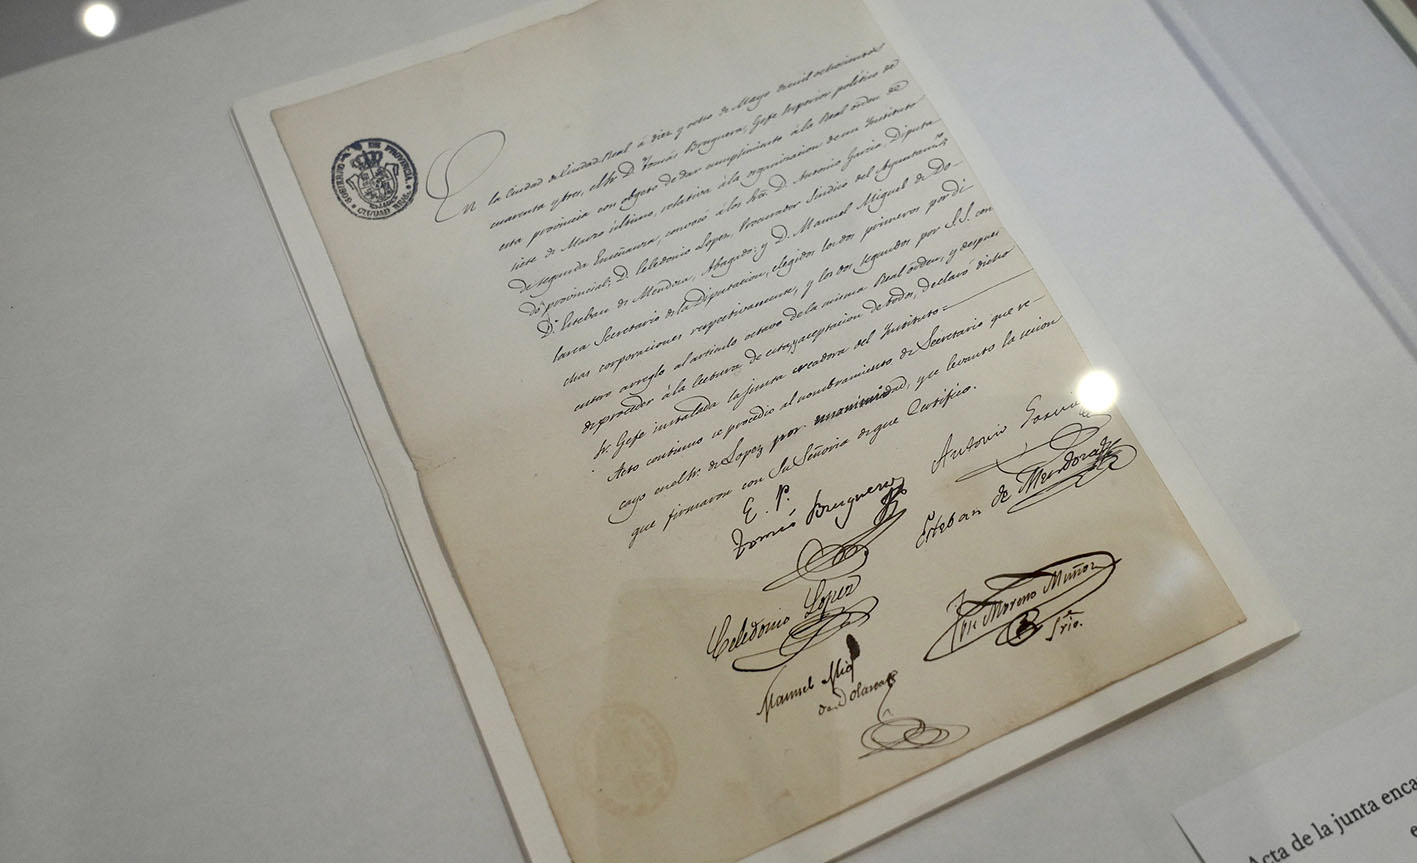 GOBIERNO DE PROVINCIA
CIUDAD REAL
En la Ciudad de Ciudad Real á diez y ocho de Mayo de mil ochocientos
cuarenta y tres, el Sr. D. Tomás Bruguera, Gefe Superior político de
esta provincia con objeto de dar cumplimiento á la Real orden de
siete de Marzo último, relativa á la organizacion de un Instituto
de segunda Enseñanza, convocó á los Sres. D. Antonio Garcia Diputa-
do provincial; D. Celedonio Lopez, Procurador Sindico del Ayuntamto.
D. Esteban de Mendoza, Abogado; y D. Manuel Miguel de Do-
larea Secretario de la Diputacion, elegidos los dos primeros por di-
chas corporaciones respectivamente, y los dos segundos por S.S. con
entero arreglo al articulo octavo de la misma Real orden, y despues
de proceder á la lectura de esta, y aceptacion de todos, declaró dicho
Sr. Gefe instalada la junta creadora del Instituto=
Acto continuo se procedió al nombramiento de Secretario que re-
cayo en el Sr. de Lopez por unanimidad, y se levantó la sesion
que firmaron con Su Señoria de que Certifico.
E. P.
Tomás Bruguera
Antonio Garcia
Esteban de Mendoza
Celedonio Lopez
José Moreno Muñoz
Srio.
Manuel Mig
de Dolarea
Acta de la junta enca
e